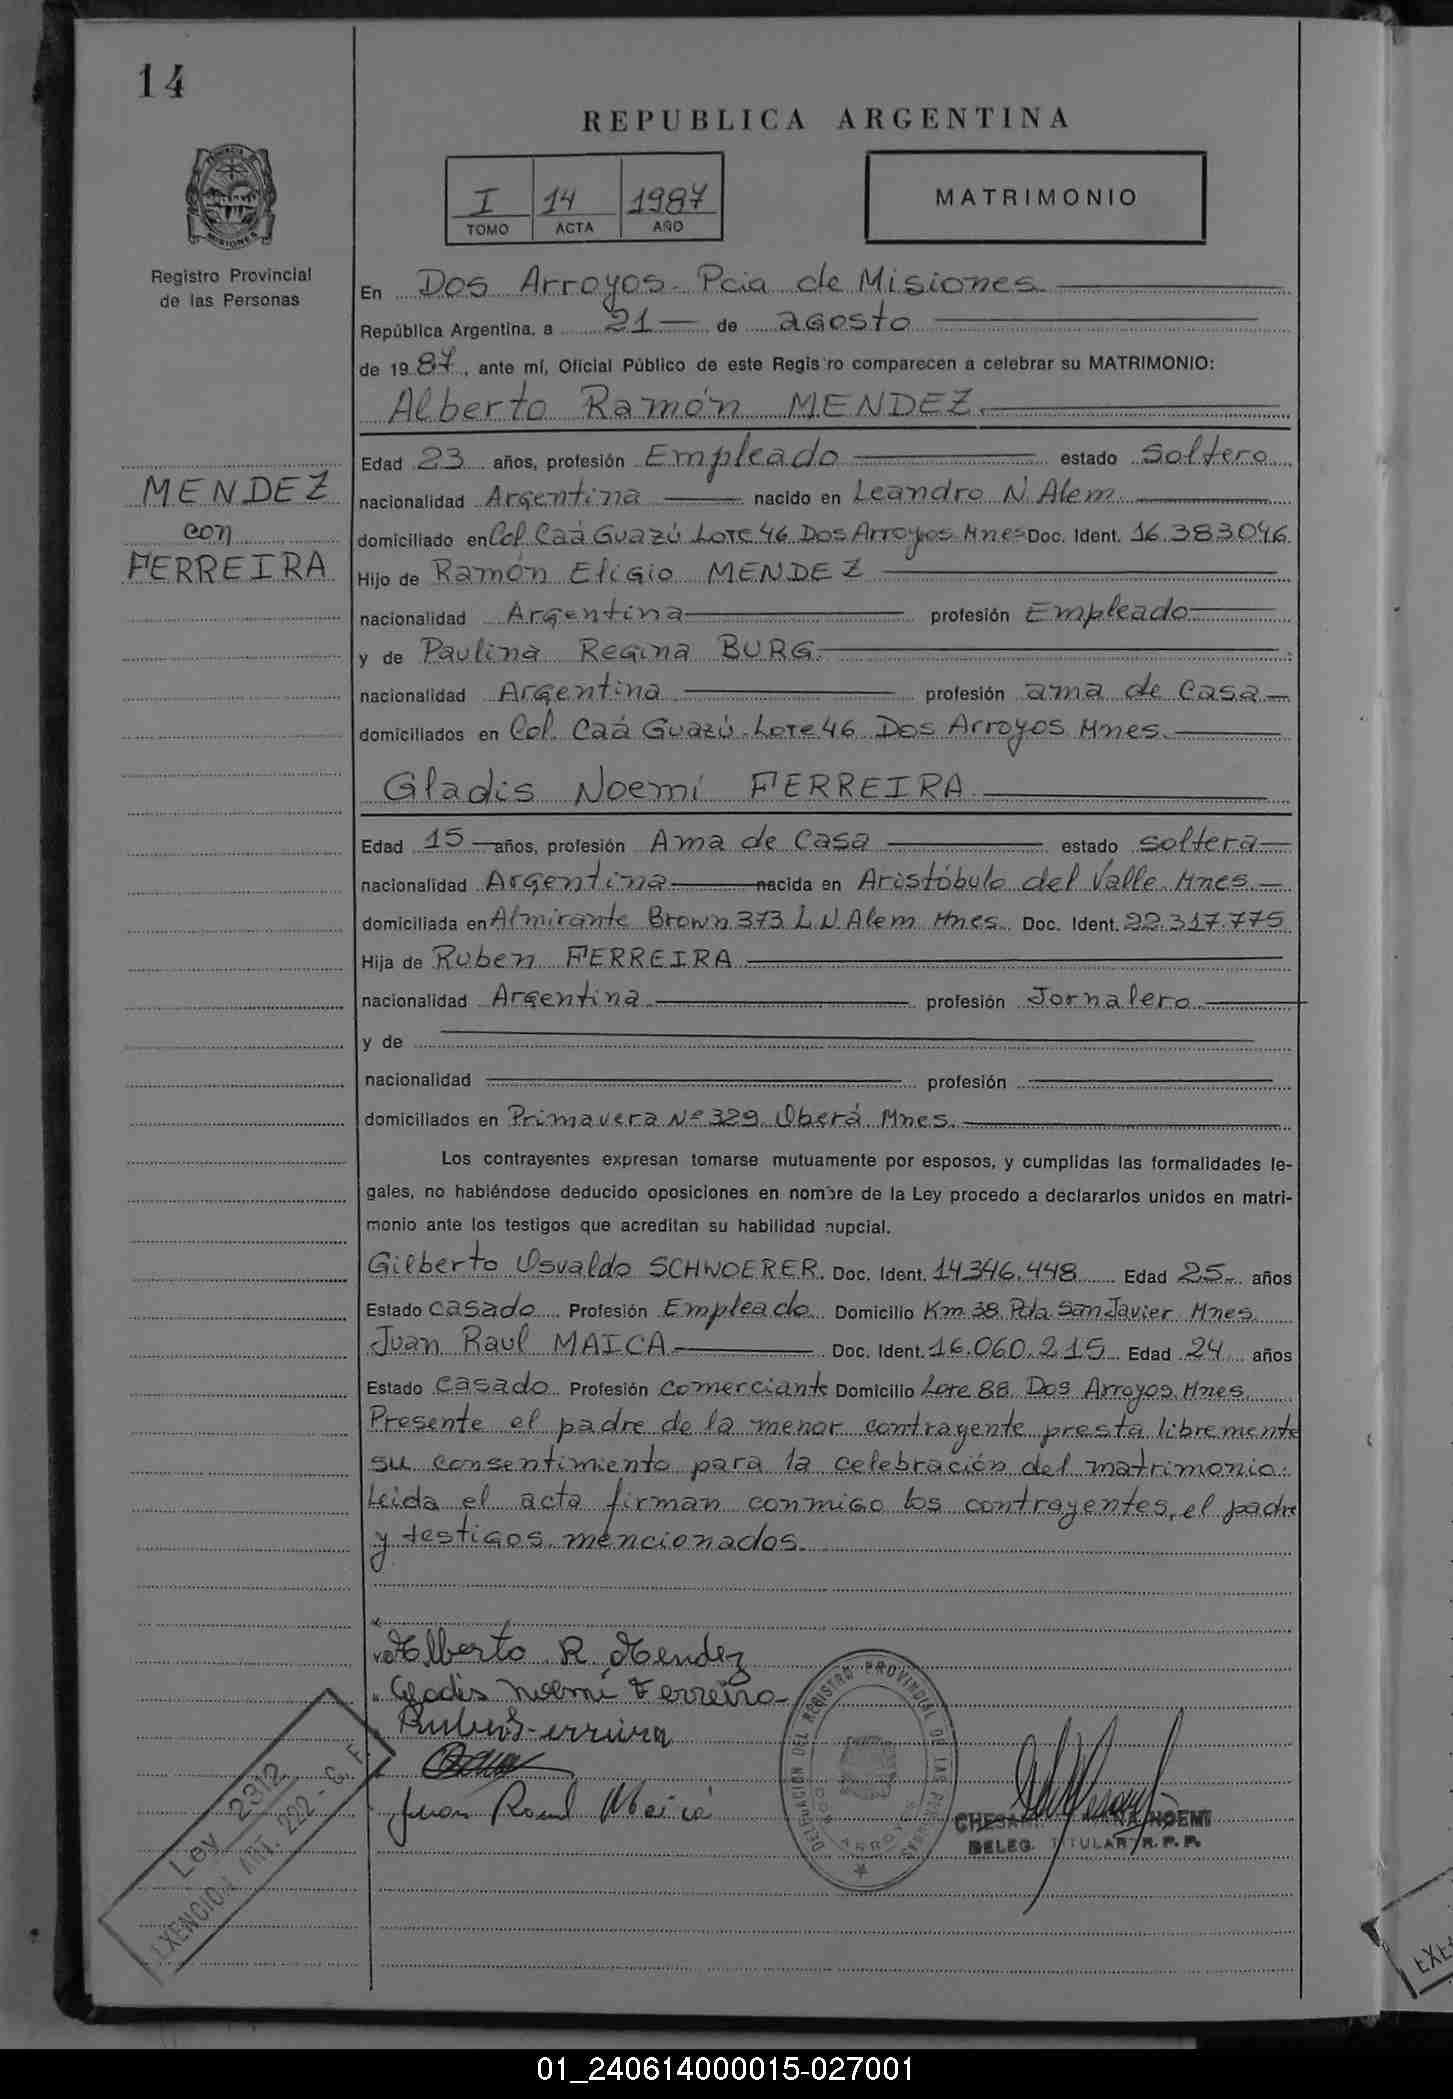 14
REPUBLICA ARGENTINA
I 14 1987
TOMO ACTA AÑO
MATRIMONIO
PROVINCIA DE
MISIONES
Registro Provincial
de las Personas
En Dos Arroyos- Pcia de Misiones
República Argentina, a 21 de agosto
de 1987, ante mí, Oficial Público de este Registro comparecen a celebrar su MATRIMONIO:
Alberto Ramón MENDEZ.
MENDEZ
con
FERREIRA
Edad 23 años, profesión Empleado estado Soltero
nacionalidad Argentina nacido en Leandro N Alem
domiciliado en Col. Caá Guazú Lote 46 Dos Arroyos Mnes Doc. Ident. 16.383.046
Hijo de Ramón Eligio MENDEZ
nacionalidad Argentina profesión Empleado
y de Paulina Regina BURG.
nacionalidad Argentina profesión ama de Casa
domiciliados en Col. Caá Guazú. Lote 46 Dos Arroyos Mnes.
Gladis Noemí FERREIRA
Edad 15 años, profesión Ama de Casa estado soltera
nacionalidad Argentina nacida en Aristóbulo del Valle Mnes
domiciliada en Almirante Brown 373 L N Alem Mnes. Doc. Ident. 22.317.775
Hija de Ruben FERREIRA
nacionalidad Argentina profesión Jornalero
y de
nacionalidad profesión
domiciliados en Primavera Nº 329 Oberá Mnes.
Los contrayentes expresan tomarse mutuamente por esposos, y cumplidas las formalidades le-
gales, no habiéndose deducido oposiciones en nombre de la Ley procedo a declararlos unidos en matri-
monio ante los testigos que acreditan su habilidad nupcial.
Gilberto Osvaldo SCHWOERER. Doc. Ident. 14.346.448 Edad 25 años
Estado casado Profesión Empleado Domicilio Km 38. Pda. San Javier Mnes
Juan Raul MAICA Doc. Ident. 16.060.215 Edad 24 años
Estado casado Profesión comerciante Domicilio Lote 88. Dos Arroyos. Mnes.
Presente el padre de la menor contrayente presta libremente
su consentimiento para la celebración del matrimonio.
Leida el acta firman conmigo los contrayentes, el padre
y testigos mencionados.
Alberto R. Mendez
Gladis Noemi Ferreira
Ruben Ferreira
Juan Raul Maica
DELEGACION DEL REGISTRO PROVINCIAL DE LAS PERSONAS
DOS ARROYOS
NOEMI
DELEG. TITULAR R. P. P.
Ley 2312
EXENCION ART. 222 - C. F.
EXE
01_240614000015-027001